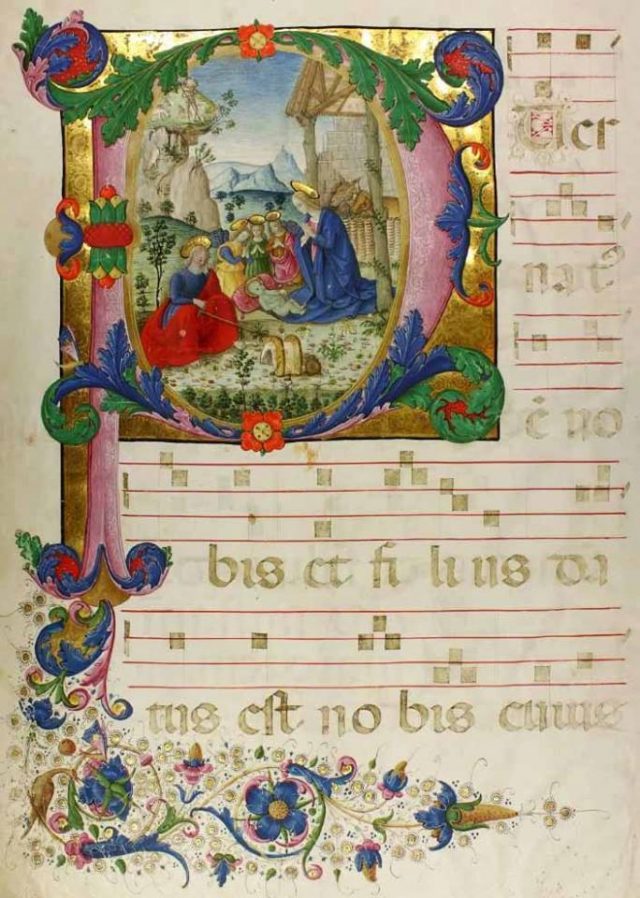 PUer
nat᾽
ē no
bis et fi lius da
tus est no bis cuius